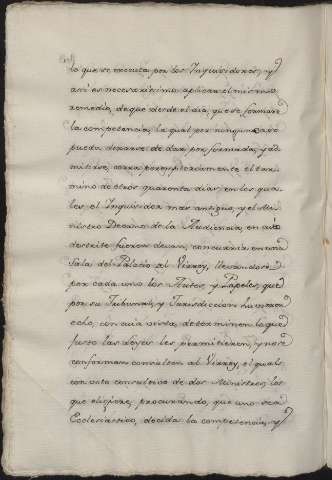 lo que se executa por los Inquisidores, y
assi es necesariísimo aplicar el mismo
remedio, de que desde el dia, que se formare
la competencia, la qual por ningun caso
pueda dexarse de dar por formada, y ad
mitirse, corra perentoriamente el ter
mino de otros quarenta dias, en los qua
les el Inquisidor mas antiguo, y el Mi
nistro Decano de la Audiencia, en cuio
destrito fueren de una, concurra en una
Sala del Palacio al Virrey, llevandose
por cada uno los Autos, y Papeles, que
por su Tribunal, y Jurisdiccion huviere
echo, con cuia vista determinen lo que
justo las Leyes les permitieren, y no se
conforman consulten al Virrey, el qual
con voto consultivo de dos Ministros, los
que eligiere, procurando, que uno sea
Ecclesiastico, decida la competencia, y